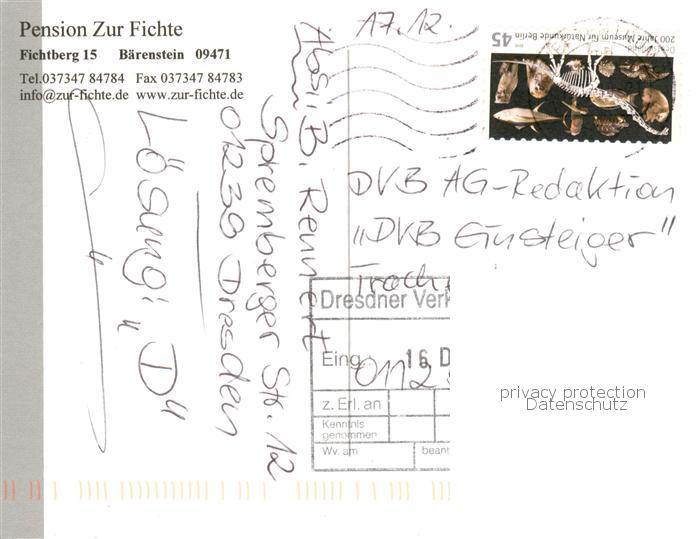 Pension Zur Fichte
Fichtberg 15 Bärenstein 09471
Tel.037347 84784 Fax 037347 84783
info@zur-fichte.de www.zur-fichte.de
17.12.
45
200 Jahre Museum für Naturkunde Berlin
Deutschland
Abs.: B. Rennert
Spremberger Str. 12
01239 Dresden
Lösung: "D"
DVB AG-Redaktion
"DVB Einsteiger"
Trach
0112
Dresdner Verk
Eing. 16 D
z. Erl. an
Kenntnis
genommen
Wv. am beant
privacy protection
Datenschutz